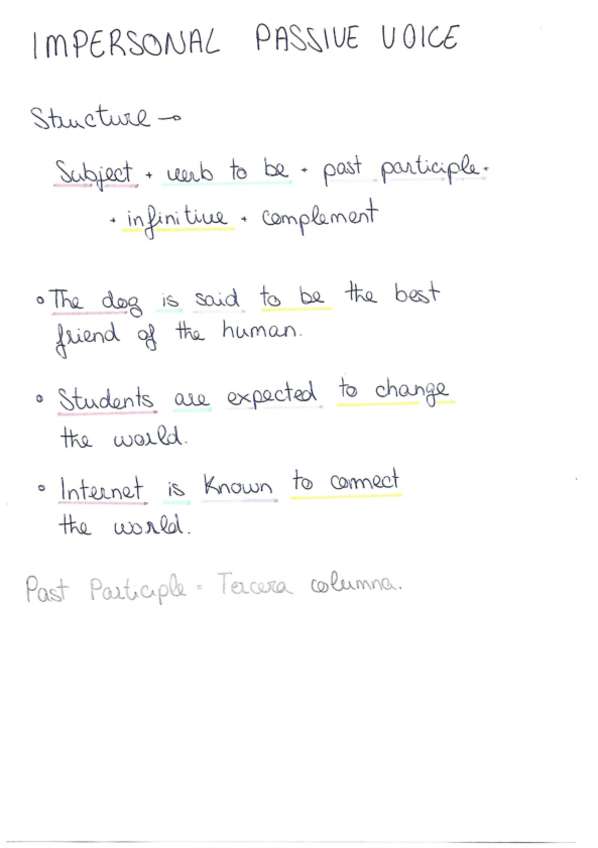 IMPERSONAL PASSIVE VOICE
Structure →
Subject + verb to be + past participle +
+ infinitive + complement
• The dog is said to be the best
friend of the human.
• Students are expected to change
the world.
• Internet is known to connect
the world.
Past Participle = Tercera columna.